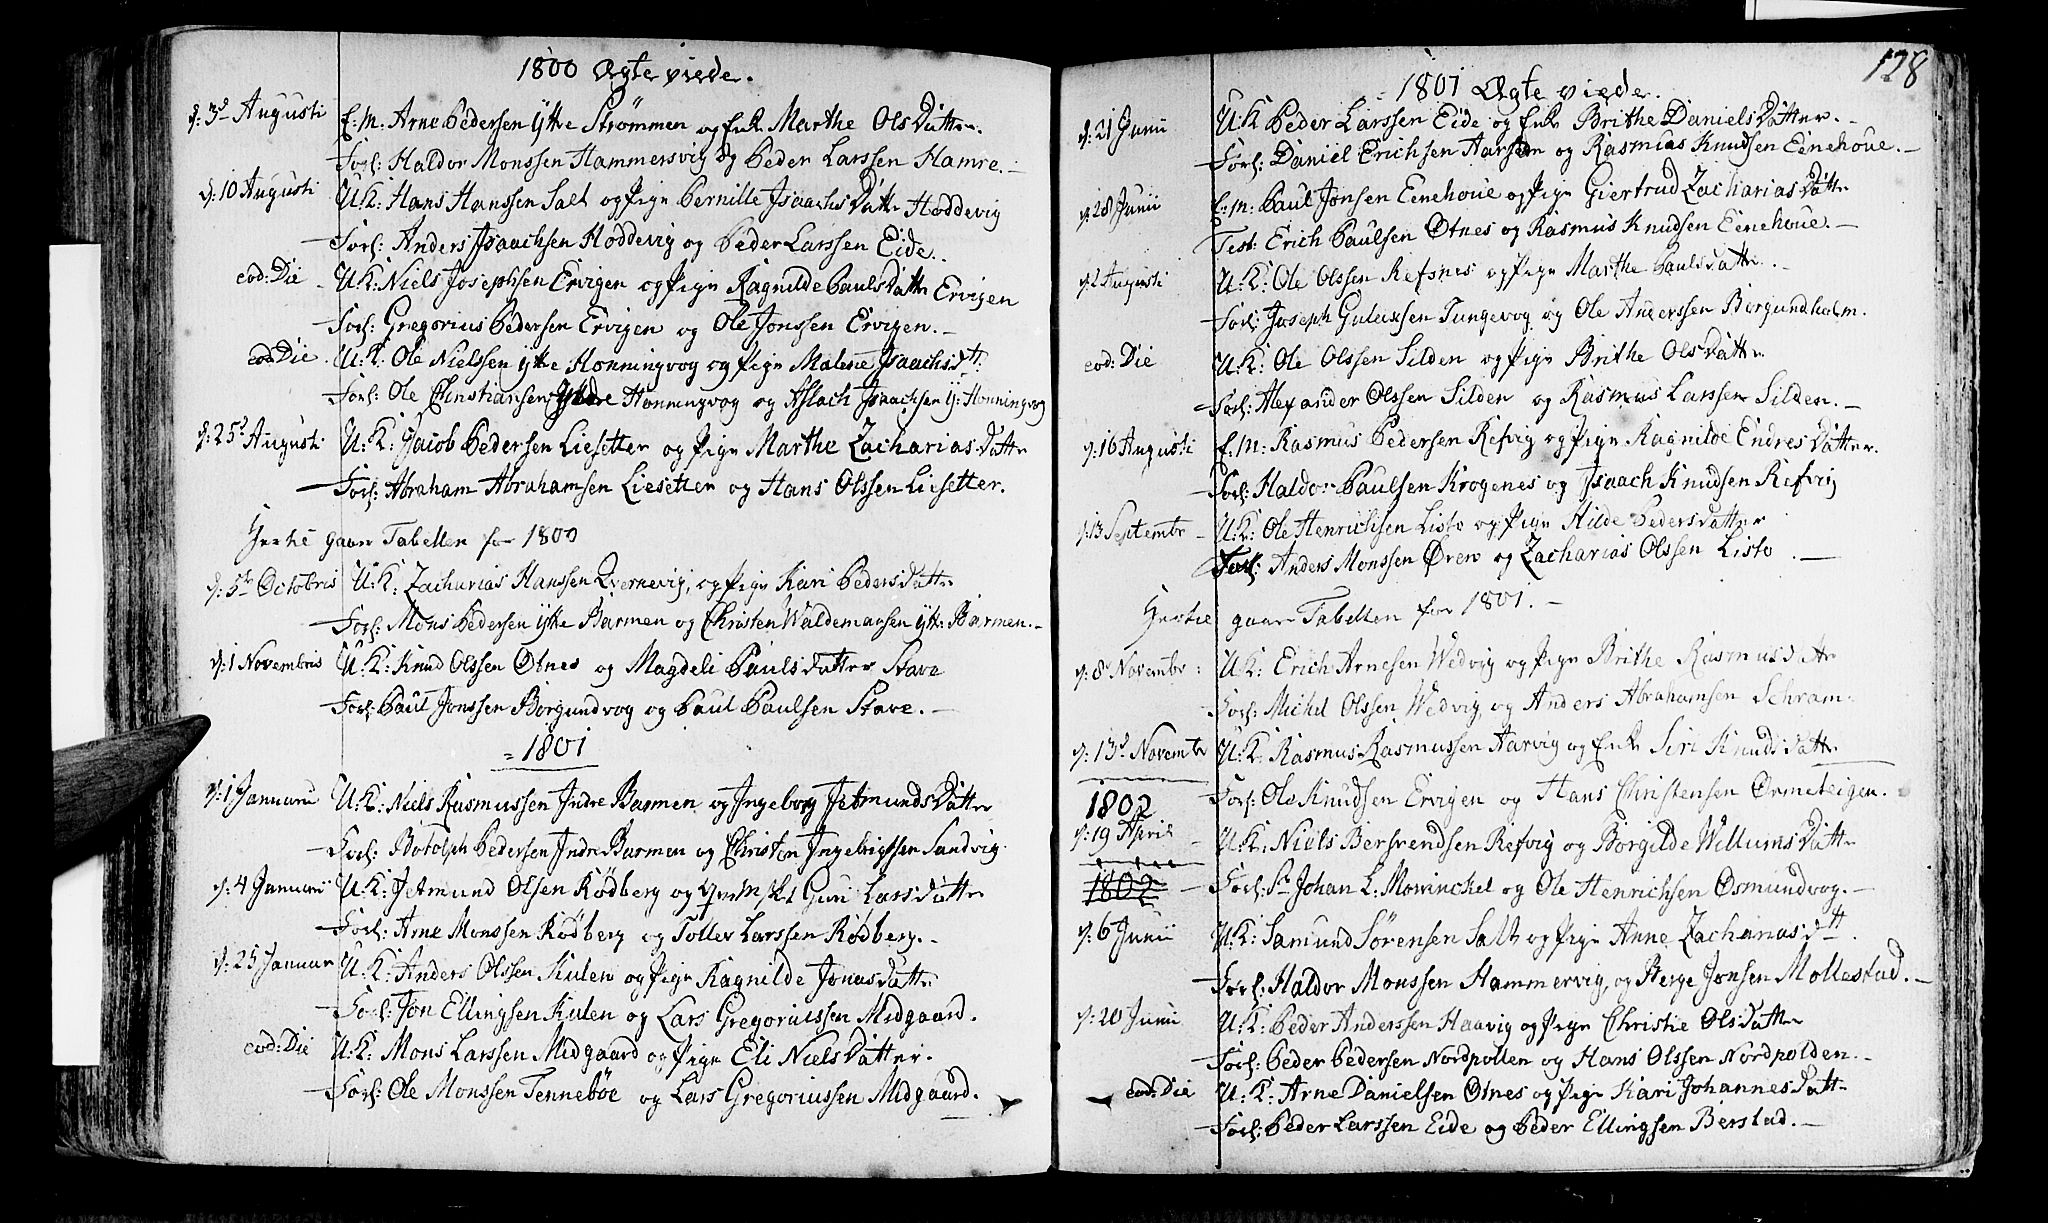 1800 Ægte viede.
d: 3d Augusti E:M: Arne Pedersen Ytre Strømmen og Enk. Marthe OlsDatter.
Forl: Haldor Monssen Hammersvig og Peder Larssen Hamre.
d: 10 Augusti U:K: Hans Hanssen Salt og Pige Pernille IsaachsDatter Hoddevig
Forl: Anders Isaachsen Hoddevig og Peder Larssen Eide.
eod: Die U:K: Niels Josephsen Ervigen og Pige Ragnilde PaulsDatter Ervigen
Forl: Gregorius Pedersen Ervigen og Ole Jonssen Ervigen.
eod: Die U:K: Ole Nielssen Ytre Honningvog og Pige Malene Isaachs Dtt:
Forl: Ole Christiansen Yttre Honningvog og Aslach Isaachsen Y: Honningvog
d: 25d Augusti U:K: Jacob Pedersen Liesetter og Pige Marthe ZachariasDatter
Forl: Abraham Abrahamsen Liesetter og Hans Olssen Liesetter.
Herhe gaaer Tabellen for 1800
d: 5te Octobris U:K: Zacharias Hanssen Qvernevig, og Pige Kari PedersDatter
Forl: Mons Pedersen Ytre Barmen og Christen Waldemansen Ytre Barmen.
d: 1 Novembris U:K: Knud Olssen Otnes og Magdeli PaulsDatter Stave
Forl: Paul Jonssen Borgundvog og Paul Paulsen Stave.
1801
d: 1 Januarii U:K: Niels Rasmussen Indre Barmen og Ingeborg JetmundsDatter
Forl: Botolph Pedersen Indre Barmen og Christen Ingebrigtssen Sandvig
d: 4 Januarii U:K: Jetmund Olsen Rødberg og Guri LarsDatter
Forl: Arne Monssen Rødberg og Tollev Larssen Rødberg.
d: 25 Januar U:K: Anders Olssen Kulen og Pige Ragnilde JonasDatter
Forl: Jon Ellingsen Kulen og Lars Gregoriussen Midgaard.
eod: Die U:K: Mons Larssen Midgaard og Pige Eli NielsDatter.
Forl: Ole Monssen Tennebøe og Lars Gregoriussen Midgaard.
128
1801 Ægte viede.
d: 21 Junii U:K Peder Larssen Eide og Enke Brithe DanielsDatter.
Forl: Daniel Erichsen Aarseen og Rasmus Knudsen Eenehoue.
d: 28 Junii E:m: Paul Jonsen Eenehoue og Pige Giertrud ZachariasDatter
Test: Erich Paulsen Otnes og Rasmus Knudsen Eenehoue.
d: 2 Augusti U:K: Ole Olssen Refsnes og Pige Marthe PaulsDatter.
Forl: Joseph Gulaxsen Tungevog og Ole Anderssen Borgundholm.
eod: Die U:K: Ole Olssen Silden og Pige Brithe OlsDatter
Forl: Alexander Olssen Silden og Rasmus Larssen Silden.
d: 16 Augusti E:M: Rasmus Pedersen Refvig og Pige Ragnilde EndresDatter.
Forl: Haldor Paulsen Krogenes og Isaach Knudsen Refvig
d: 13 Septembr U:K: Ole Henrichsen Listo og Pige Hilde PedersDatter
Forl: Anders Monssen Øren og Zacharias Olssen Listo.
Herhie gaaer Tabellen for 1801.
d: 8 Novembr: U:K: Erich Arnesen Wedvig og Pige Brithe RasmusDatter
Forl: Michel Olssen Wedvig og Anders Abrahamsen Schram.
d: 13d Novembr U:K: Rasmus Rasmussen Aarvig og Enke Siri KnudsDatter
Forl: Ole Knudsen Ervigen og Hans Christensen Ormeteigen.
1802
d: 19 April U:K: Niels Bersvendsen Refvig og Borgilde WillumsDatter
1802 Forl: Sr Johan L: Mowinckel og Ole Henrichsen Osmundvog.
d: 6 Junii U:K: Samund Sørensen Salt og Pige Anne Zacharias Dtt.
Forl: Haldor Monssen Hammervig, og Børge Jonsen Mollestad.
d: 20 Junii U:K: Peder Anderssen Haavig og Pige Christie OlsDatter
Forl: Peder Pedersen Nordpollen og Hans Olssen Nordpolden.
eod: Die U:K: Arne Danielsen Otnes og Pige Kari JohannesDatter
Forl: Peder Larssen Eide og Peder Ellingsen Berstad.